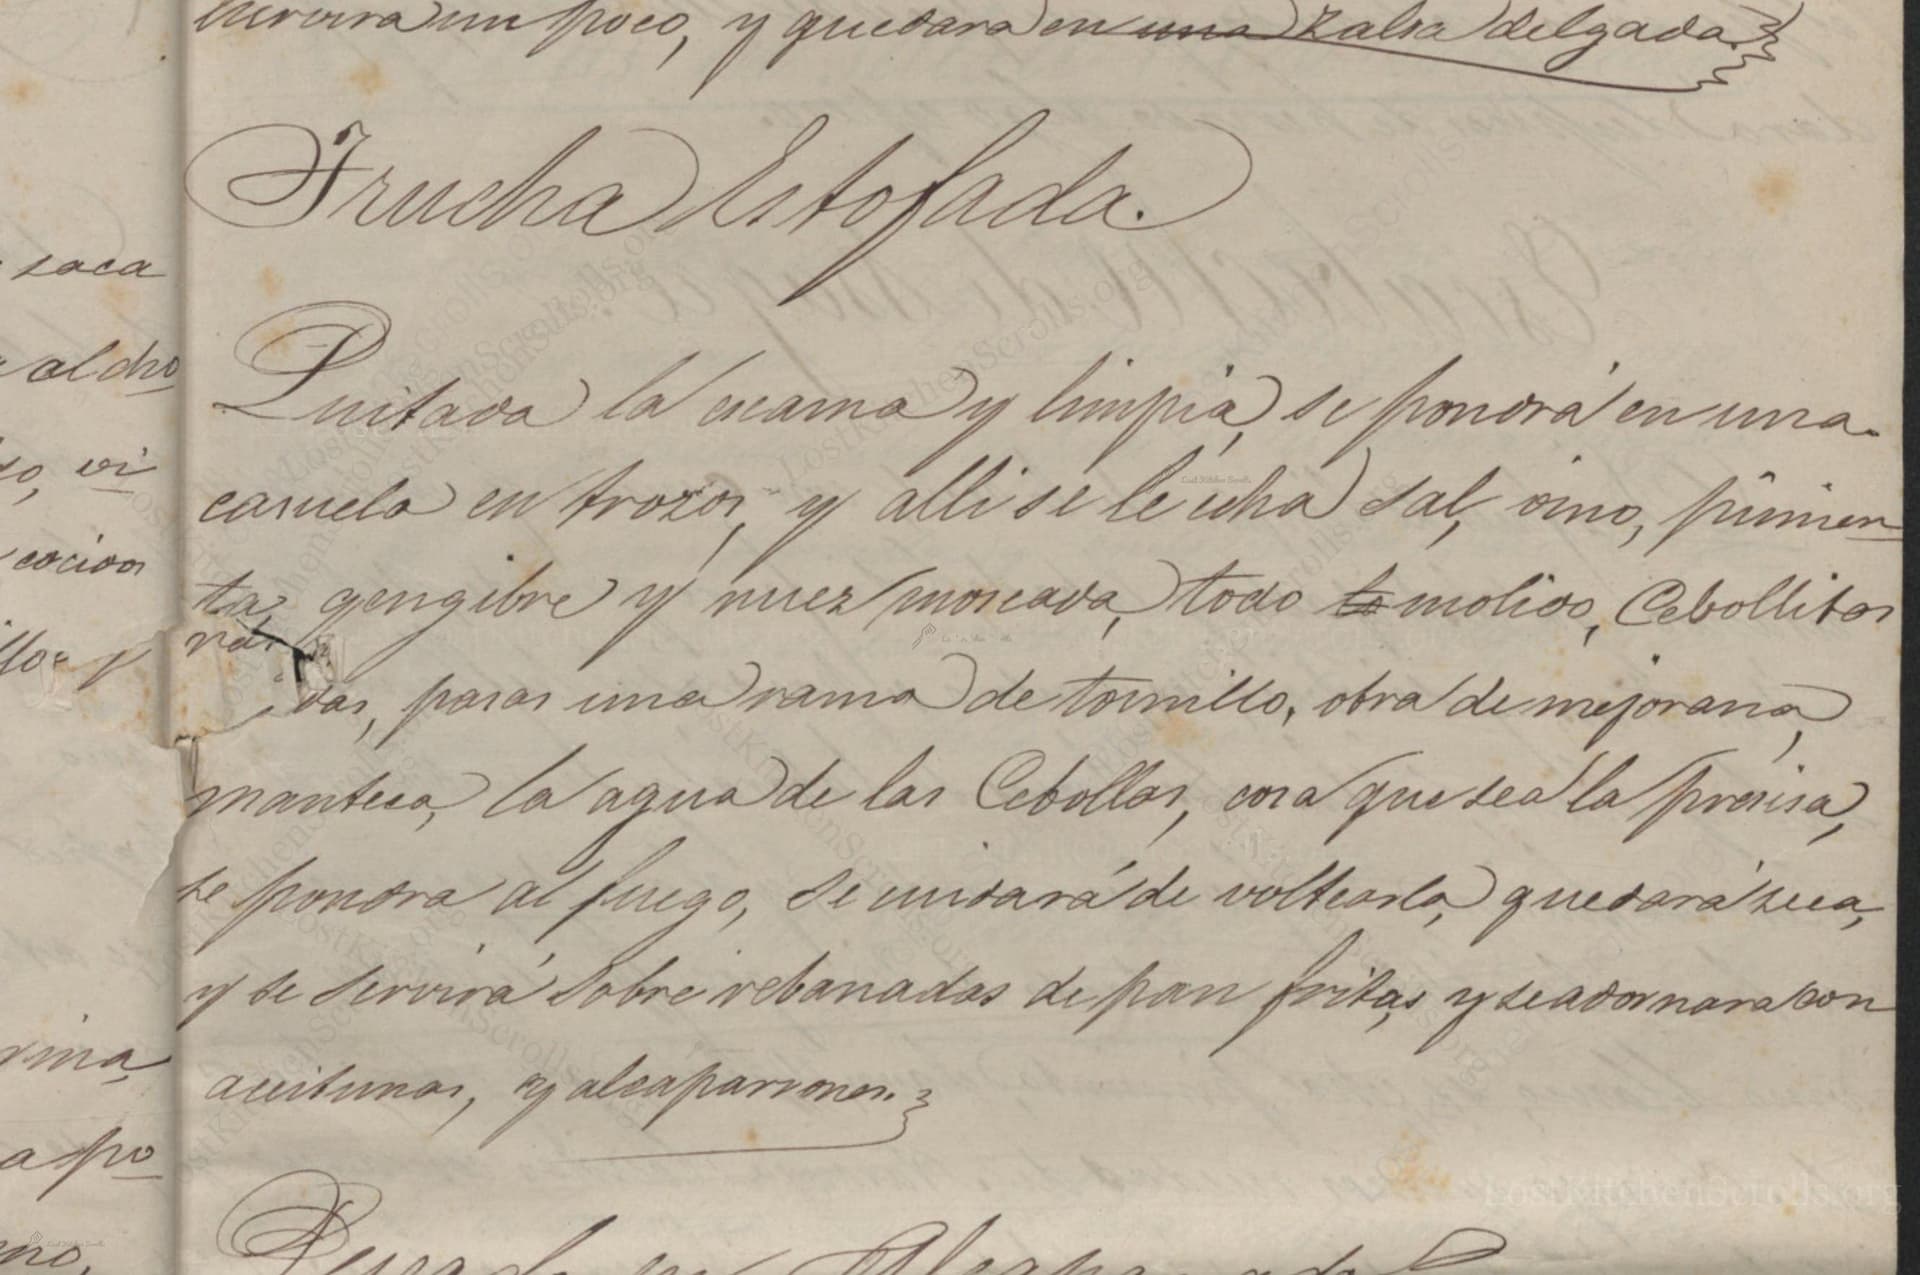 un poco, y quedara en una zalsa delgada.
Trucha Estofada.
Quitada la escama y limpia, se pondrá en una
casuela en trozos, y alli se le echa sal, vino, pimien
ta, gengibre y nuez moscada, todo lo molido, Cebollitas
das, pasas una rama de tomillo, otra de mejorana,
manteca, la agua de las Cebollas, cosa que sea la precisa,
se pondra al fuego, se cuidará de voltearla, quedará seca,
y se servirá sobre rebanadas de pan fritas, y se adornara con
aceitunas, y alcaparrones.
saca
al cho
vi
cocidos
y
rina,
a po
no,
Pescado en
LostKitchenScrolls.org